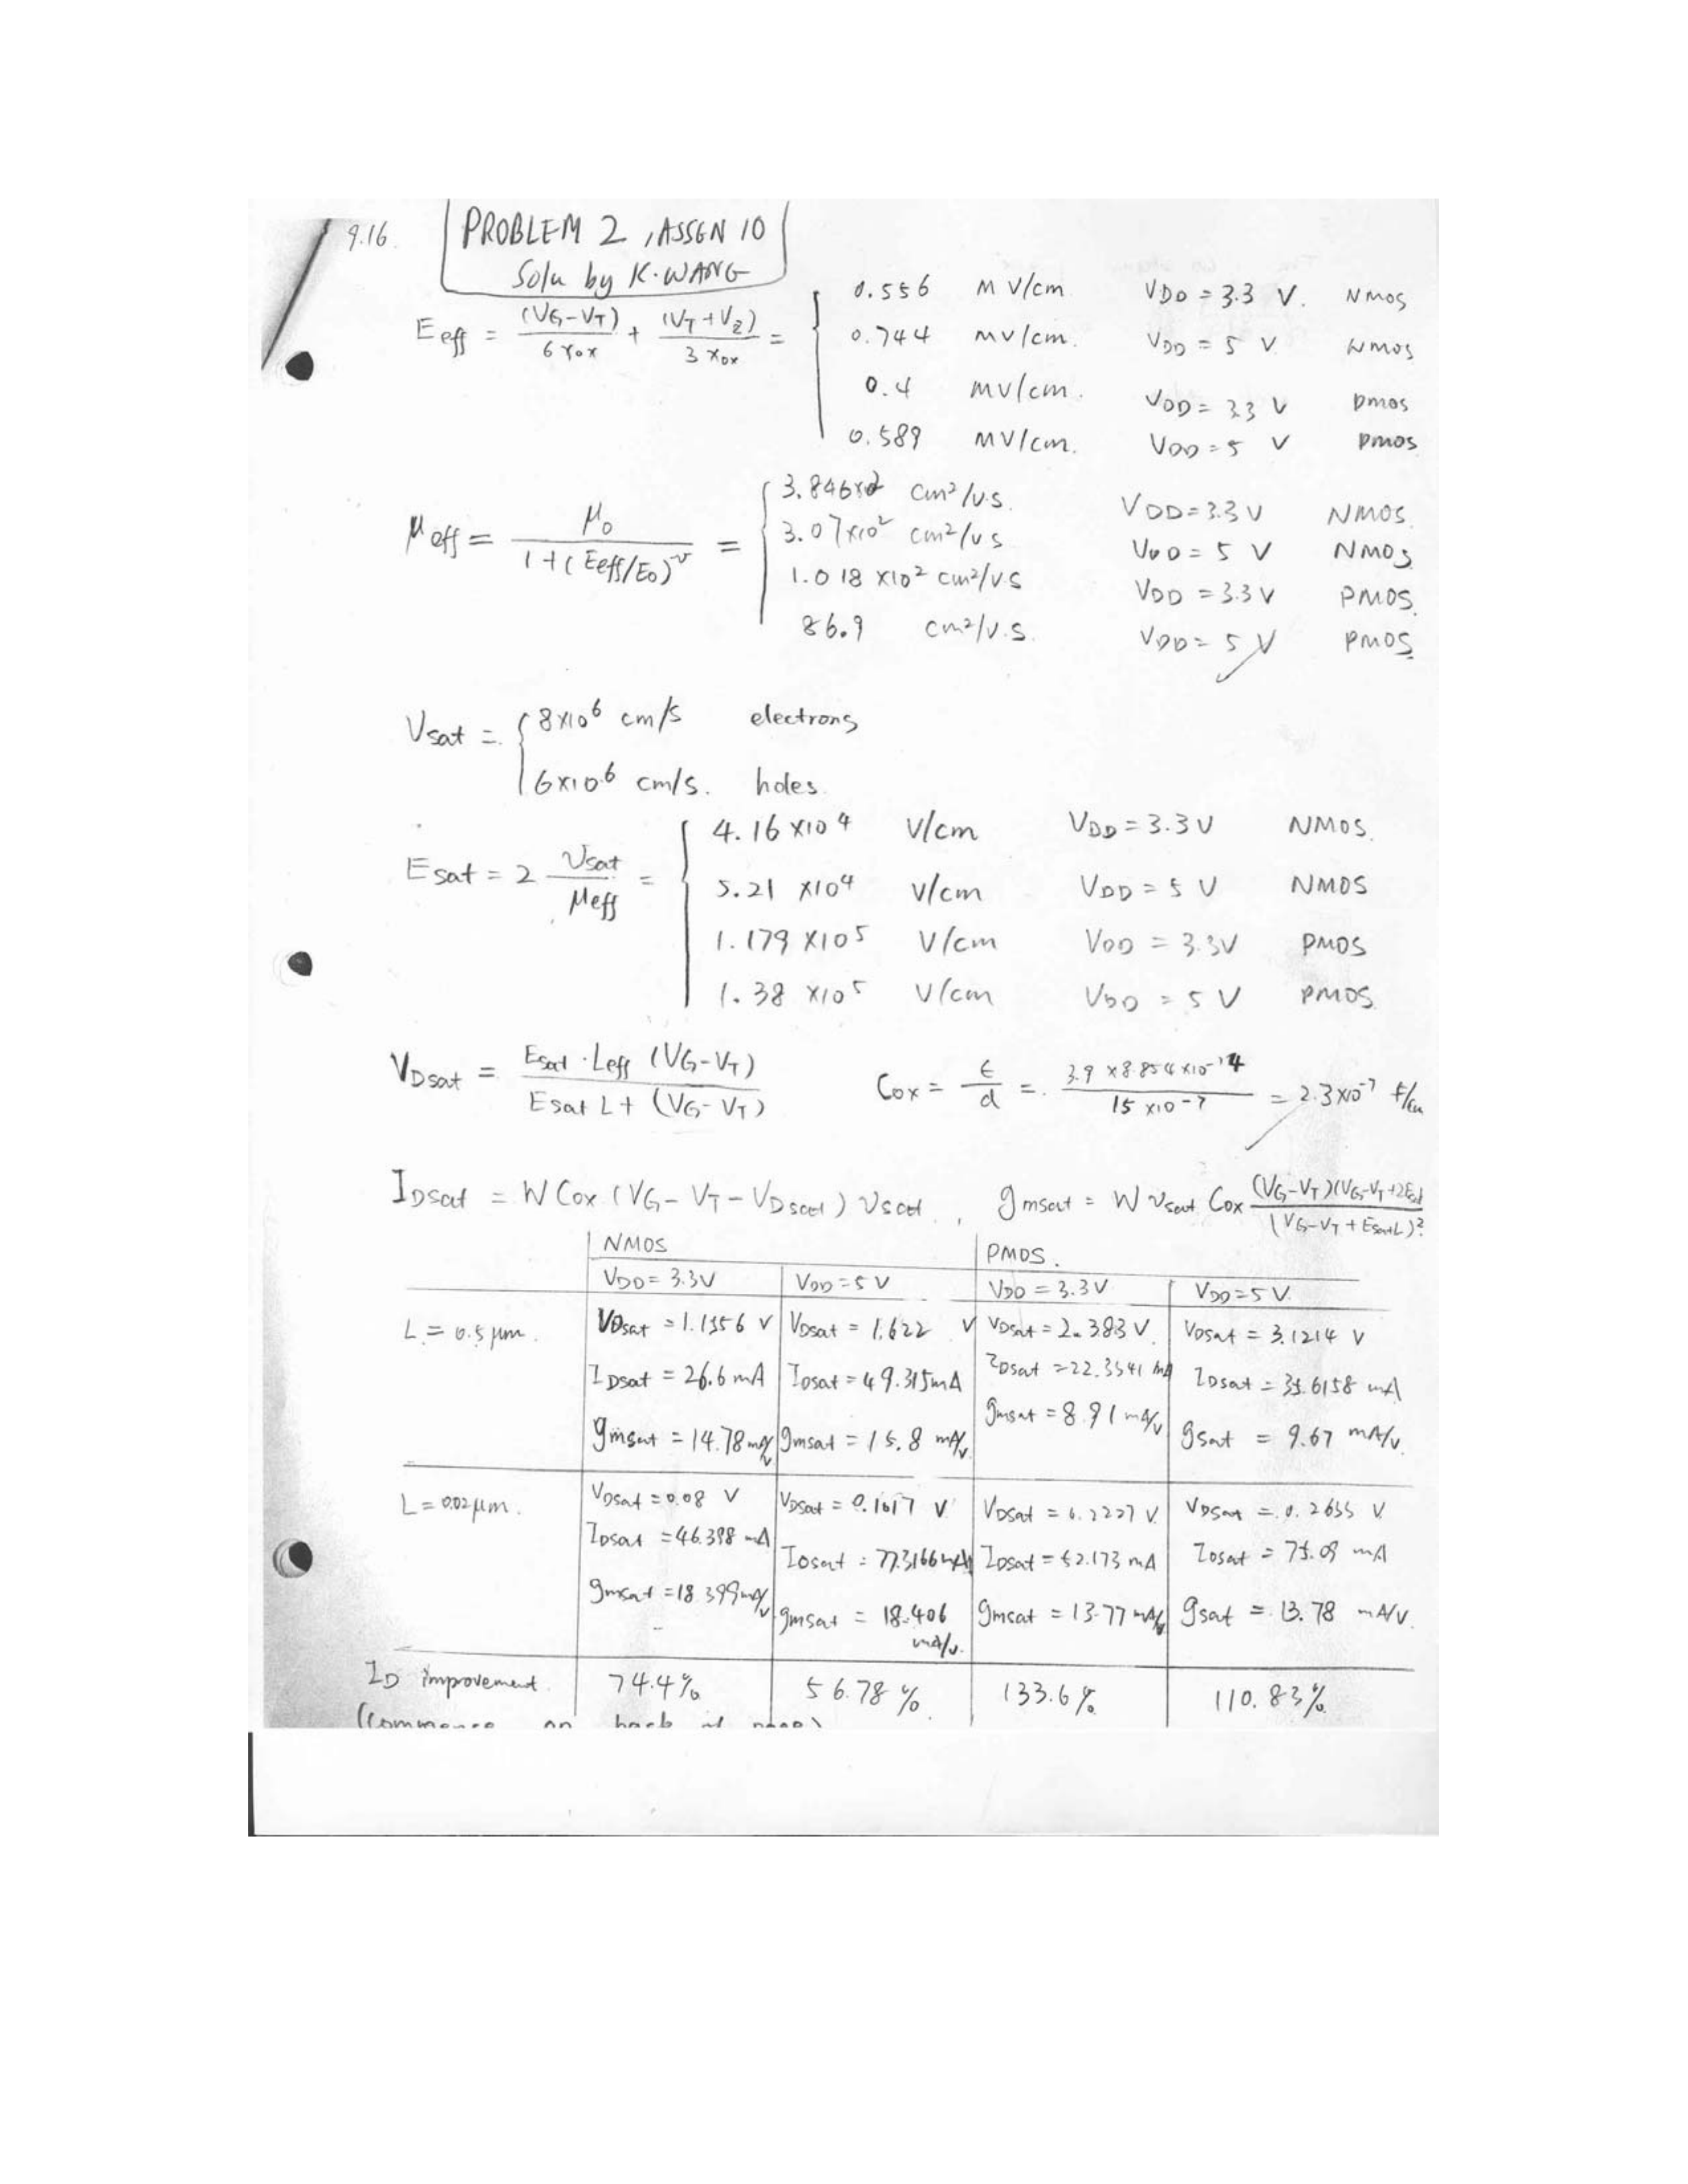 9.16. PROBLEM 2, ASSGN 10
Soln by K. WANG
E eff = (VG-VT) / 6 xox + (VT+Vz) / 3 xox =
0.556 MV/cm VDD = 3.3 V. NMOS
0.744 MV/cm. VDD = 5 V NMOS
0.4 MV/cm. VDD = 3.3 V PMOS
0.589 MV/cm. VDD = 5 V PMOS
μeff = μ0 / 1+(Eeff/E0)^ν =
3.846×10² cm²/V.S. VDD=3.3V NMOS.
3.07×10² cm²/V S VDD = 5 V NMOS
1.018 ×10² cm²/V.S VDD = 3.3V PMOS.
86.9 cm²/V.S. VDD = 5 V PMOS
Vsat = 8×10⁶ cm/s electrons
6×10⁶ cm/s. holes.
Esat = 2 Vsat / μeff =
4.16 ×10⁴ V/cm VDD = 3.3V NMOS.
5.21 ×10⁴ V/cm VDD = 5 V NMOS
1.179 ×10⁵ V/cm VDD = 3.3V PMOS
1.38 ×10⁵ V/cm VDD = 5 V PMOS
VDsat = Esat · Leff (VG-VT) / Esat L + (VG-VT) Cox = ε / d = 3.9 ×8.854×10⁻¹⁴ / 15 ×10⁻⁷ = 2.3×10⁻⁷ F/cm
IDsat = W Cox (VG - VT - VDsat) Vsat, gmsat = W Vsat Cox (VG-VT)(VG-VT+2Esat / (VG-VT + EsatL)²
NMOS PMOS.
VDD = 3.3V VDD = 5 V VDD = 3.3V VDD = 5 V.
L = 0.5 μm. VDsat = 1.1356 V VDsat = 1.622 V VDsat = 2.383 V. VDsat = 3.1214 V
IDsat = 26.6 mA IDsat = 49.315mA IDsat = 22.3341 mA IDsat = 35.6158 mA
gmsat = 14.78 mA/V gmsat = 15.8 mA/V. gmsat = 8.91 mA/V gsat = 9.67 mA/V.
L = 0.02 μm. VDsat = 0.08 V VDsat = 0.1017 V VDsat = 0.2227 V. VDsat = 0.2655 V
IDsat = 46.398 mA IDsat = 77.3166 mA IDsat = 52.173 mA IDsat = 75.09 mA
gmsat = 18.399 mA/V gmsat = 18.406 mA/V. gmsat = 13.77 mA/V gsat = 13.78 mA/V.
ID improvement. 74.4% 56.78 %. 133.6% 110.83%
on back of page)